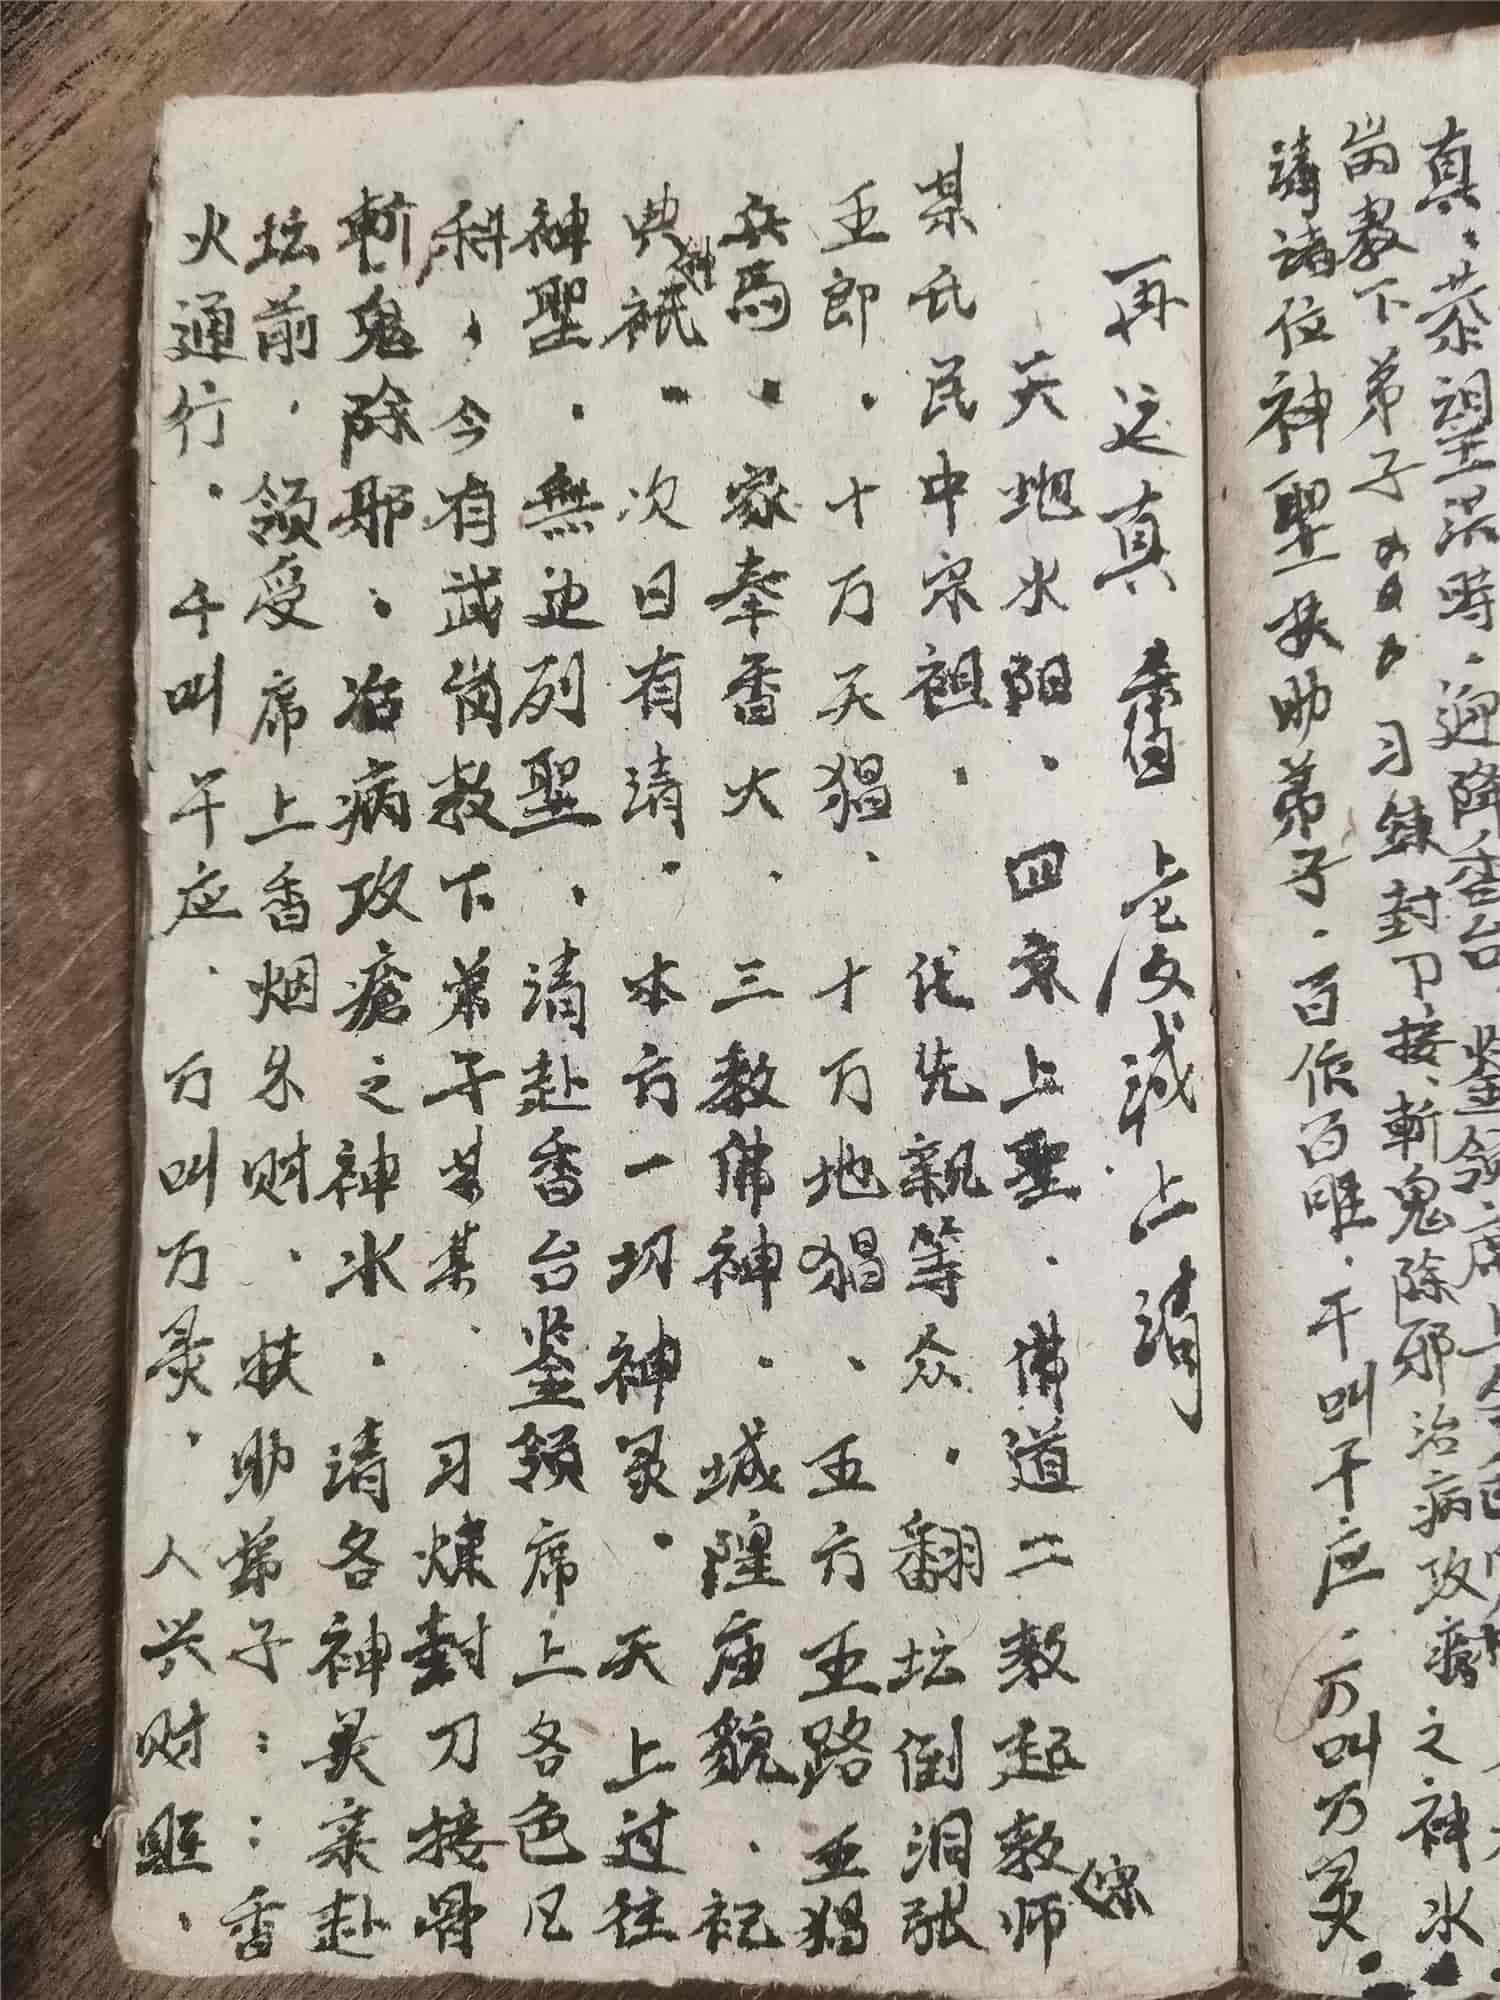 真．恭望洪時．迎降香台．鉴领席上
崗教下弟子 习鍊封刀接．斬鬼除邪治病攻瘡之神水．
请诸位神聖扶助弟子．百作百唯．千叫千应．万叫万灵
再运真香 上请
天地水阳．四京上聖．佛道二教起教宗师
某氏民中宗祖． 代先親等众．翻坛倒洞张
五郎．十万天猖．十万地猖．五方五路五猖
兵馬．家奉香火．三教佛神．城隍庙貌．祀
典神祇．次日有请．本方一切神灵．天上过往
神聖．無边列聖．请赴香台鉴领席上各色凡
科，今有武崗教下弟子某某．习煉封刀接骨
斬鬼除邪．治病攻瘡之神水．请各神灵来赴
坛前．领受席上香烟名财．扶助弟子：：香
火通行．千叫千应．万叫万灵．人兴财旺．